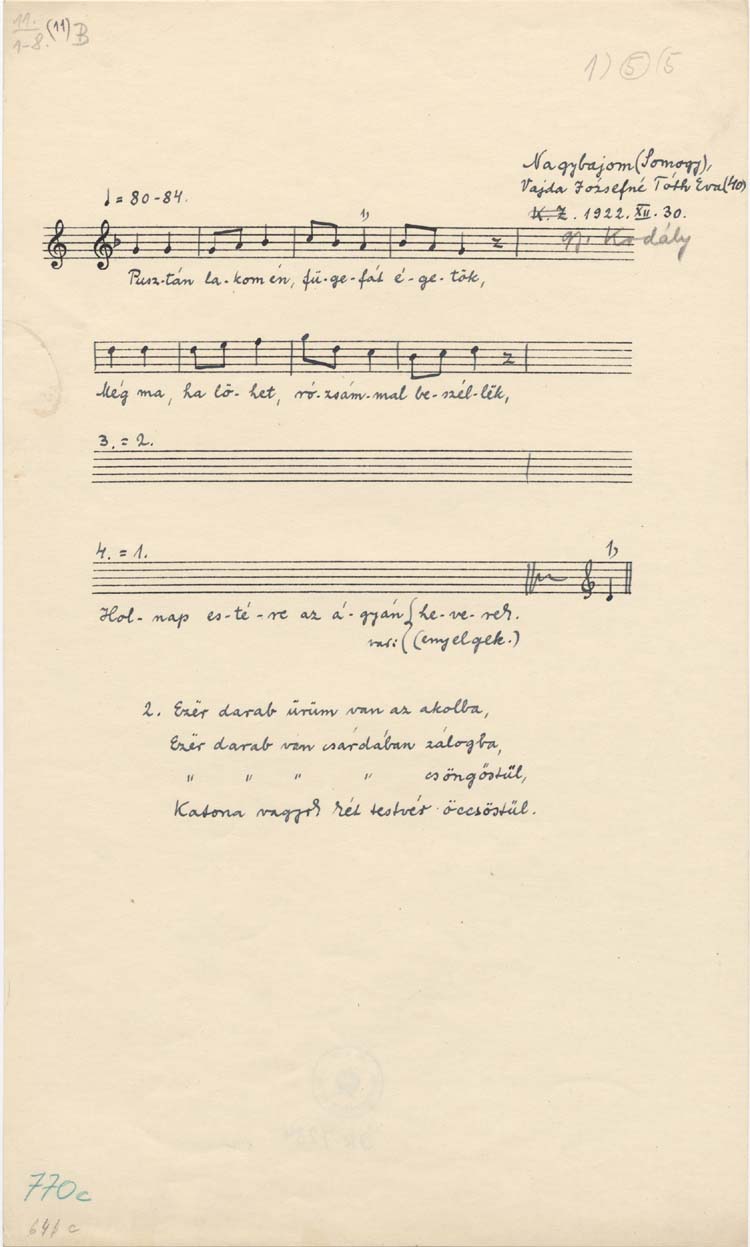 11. (11) B
1-8.
1) 5 (5
Nagybajom (Somogy),
Vajda Józsefné Tóth Eva (40)
♩ = 80-84.
K. Z. 1922. XII. 30.
gy. Kodály
1)
Pusz-tán la-kom én, fü-ge-fát é-ge-tök,
Még ma, ha lö-het, ró-zsám-mal be-szél-lëk,
3. = 2.
4. = 1.
1)
Hol-nap es-té-re az á-gyán he-ve-rek.
vari: (enyelgek.)
2. Ezër darab ürüm van az akolba,
Ezër darab van csárdában zálogba,
" " " " csöngőstül,
Katona vagyok két testvér öccsöstül.
770c
641 c